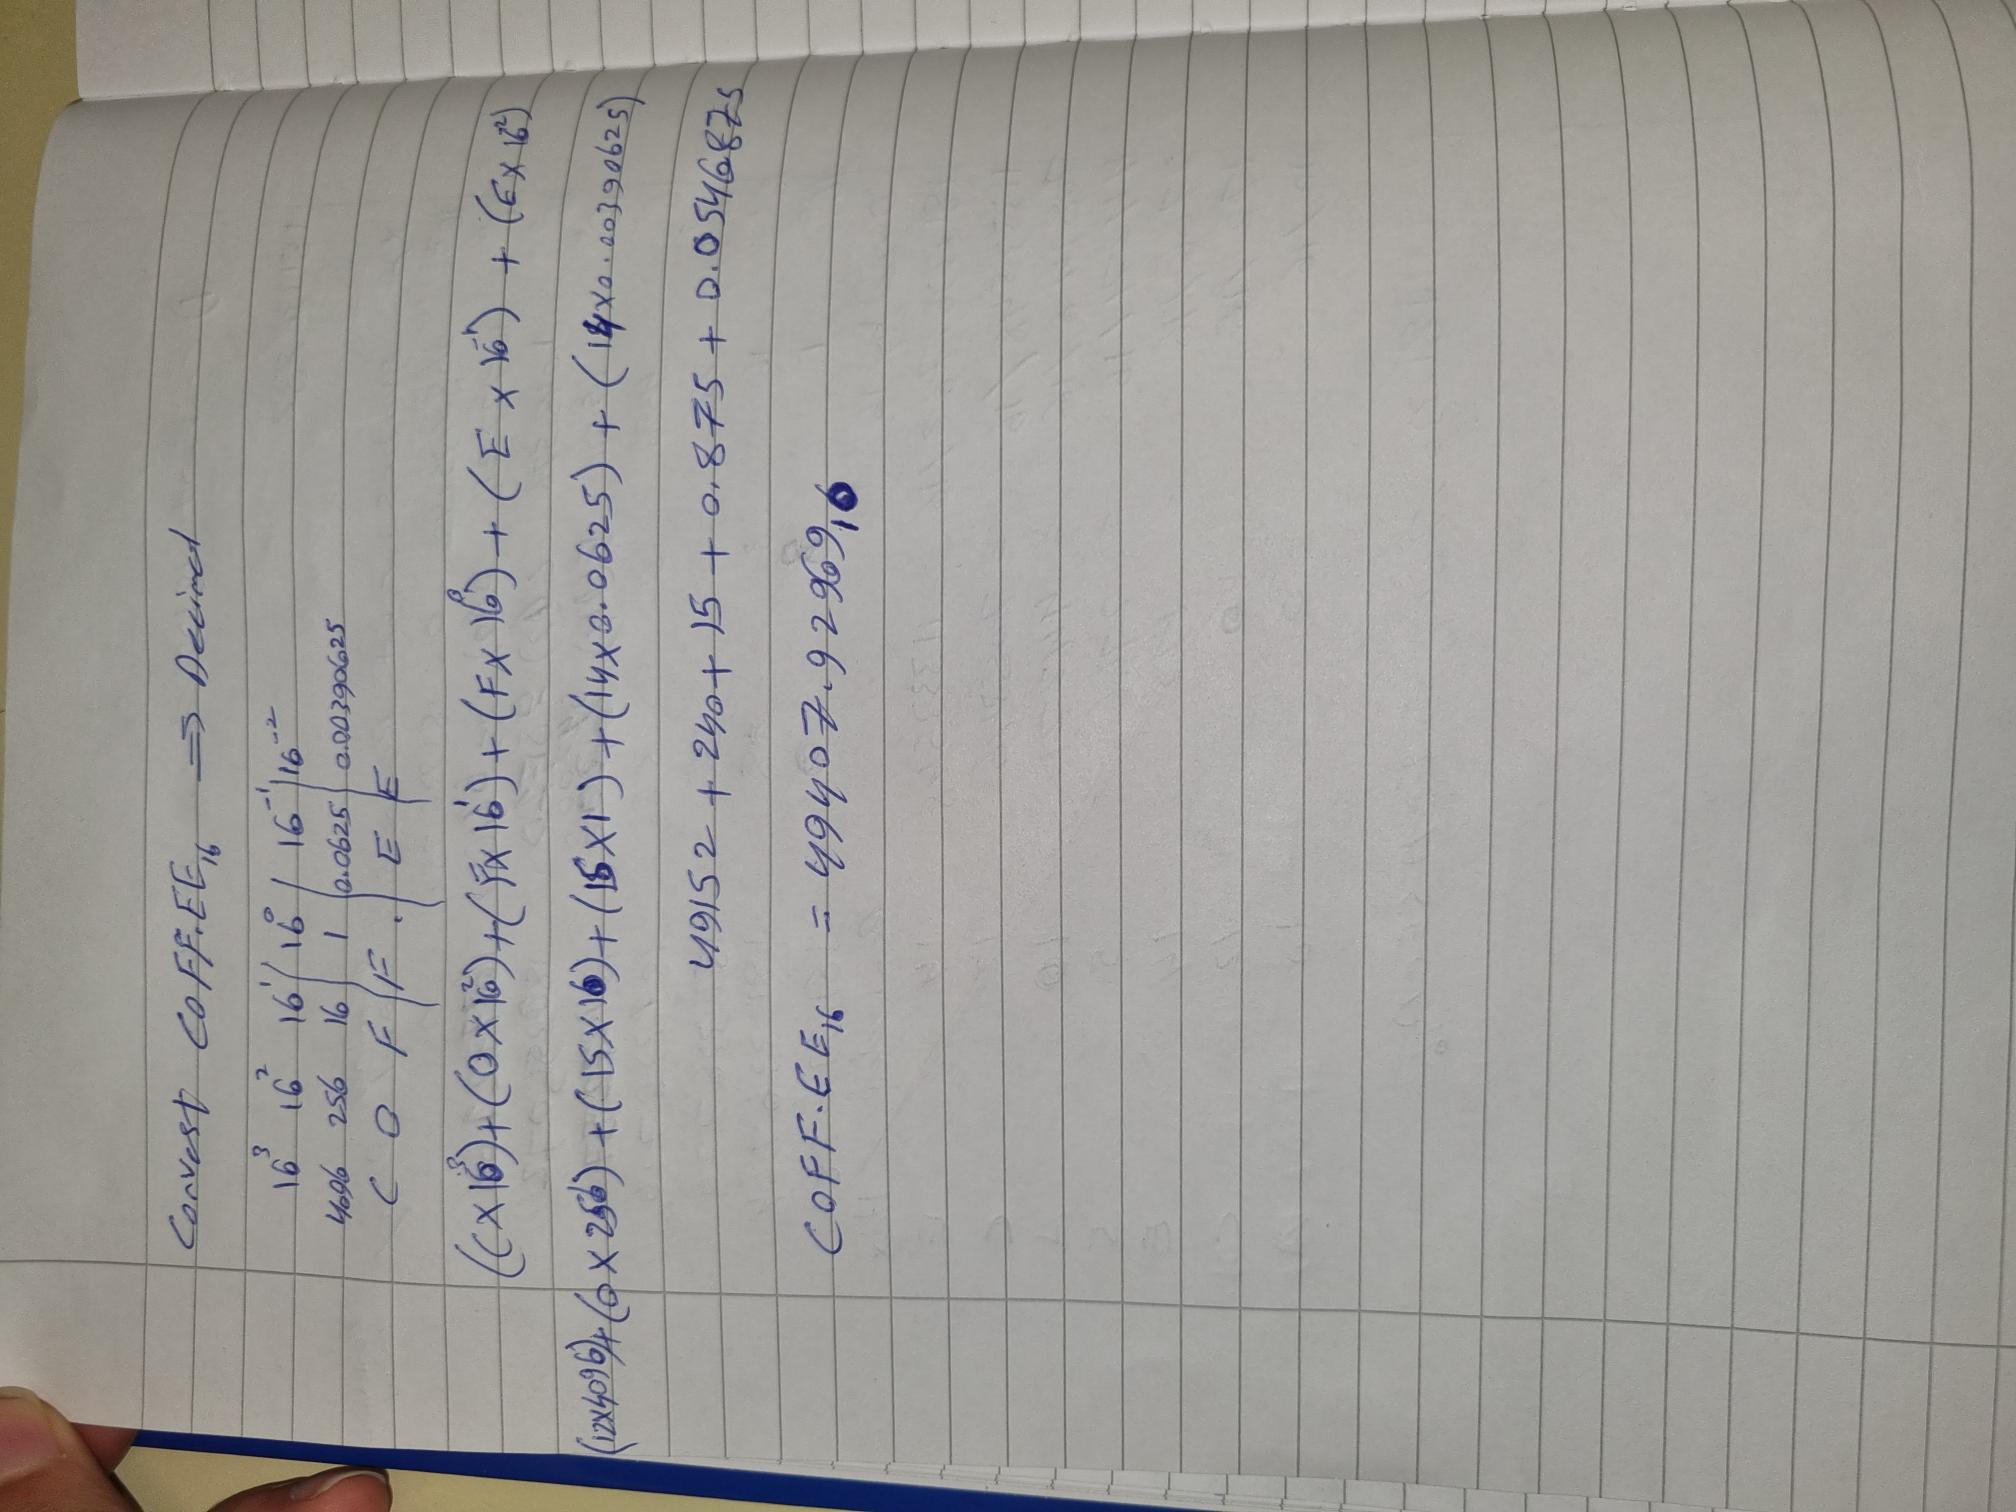 Convert C0FF.EE₁₆ => Decimal
16³ 16² 16¹ / 16⁰ / 16⁻¹ / 16⁻²
4096 256 16 1 0.0625 0.00390625
C 0 F F . E E
(C×16³)+(0×16²)+(F×16¹)+(F×16⁰)+(E×16⁻¹)+(E×16⁻²)
(12×4096)+(0×256)+(15×16)+(15×1)+(14×0.0625)+(14×0.00390625)
49152+240+15+0.875+0.0546875
C0FF.EE₁₆ = 49407.92969₁₀